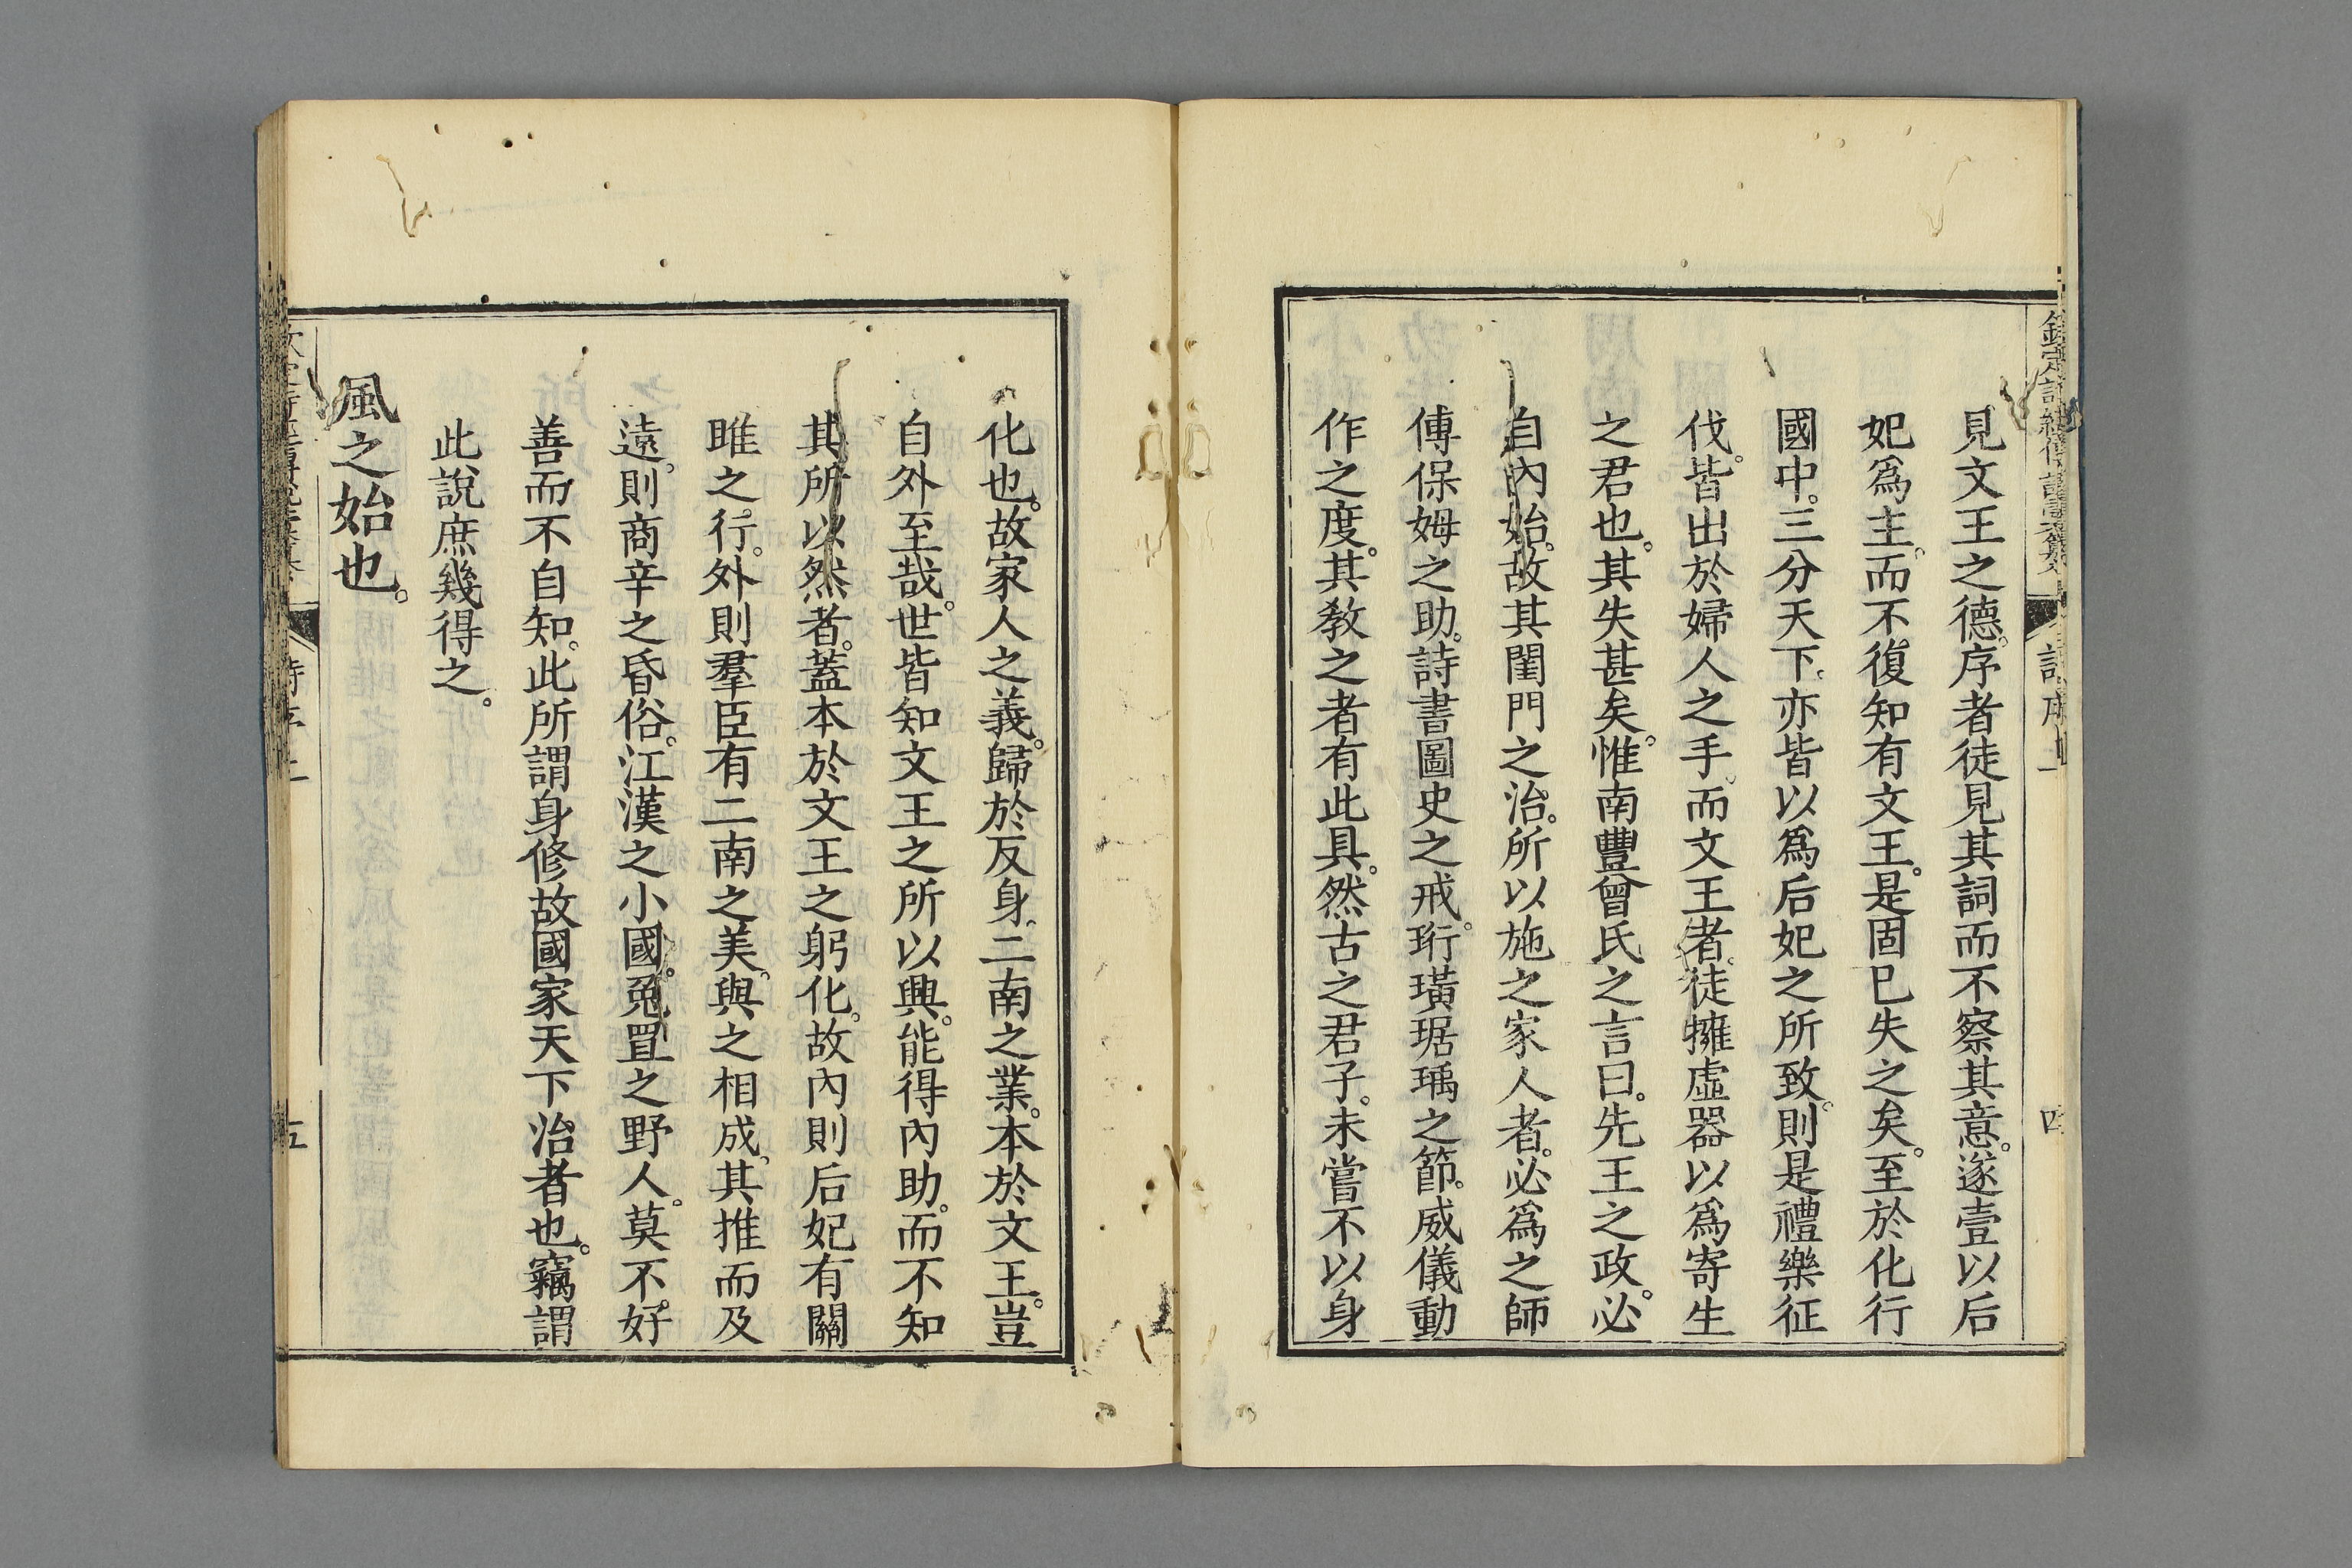 見文王之德。序者徒見其詞而不察其意。遂壹以后
妃爲主。而不復知有文王。是固巳失之矣。至於化行
國中。三分天下。亦皆以爲后妃之所致。則是禮樂征
伐。皆出於婦人之手。而文王者。徒擁虛器以爲寄生
之君也。其失甚矣。惟南豐曾氏之言曰。先王之政。必
自內始。故其閨門之治。所以施之家人者。必爲之師
傅保姆之助。詩書圖史之戒。珩璜琚瑀之節。威儀動
作之度。其敎之者有此具。然古之君子。未嘗不以身
化也。故家人之義。歸於反身。二南之業。本於文王。豈
自外至哉。世皆知文王之所以興。能得內助。而不知
其所以然者。蓋本於文王之躬化。故內則后妃有關
雎之行。外則羣臣有二南之美。與之相成。其推而及
遠。則商辛之昏俗。江漢之小國。兔罝之野人。莫不好
善而不自知。此所謂身修故國家天下治者也。竊謂
此說庶幾得之。
風之始也。
詩序上
五